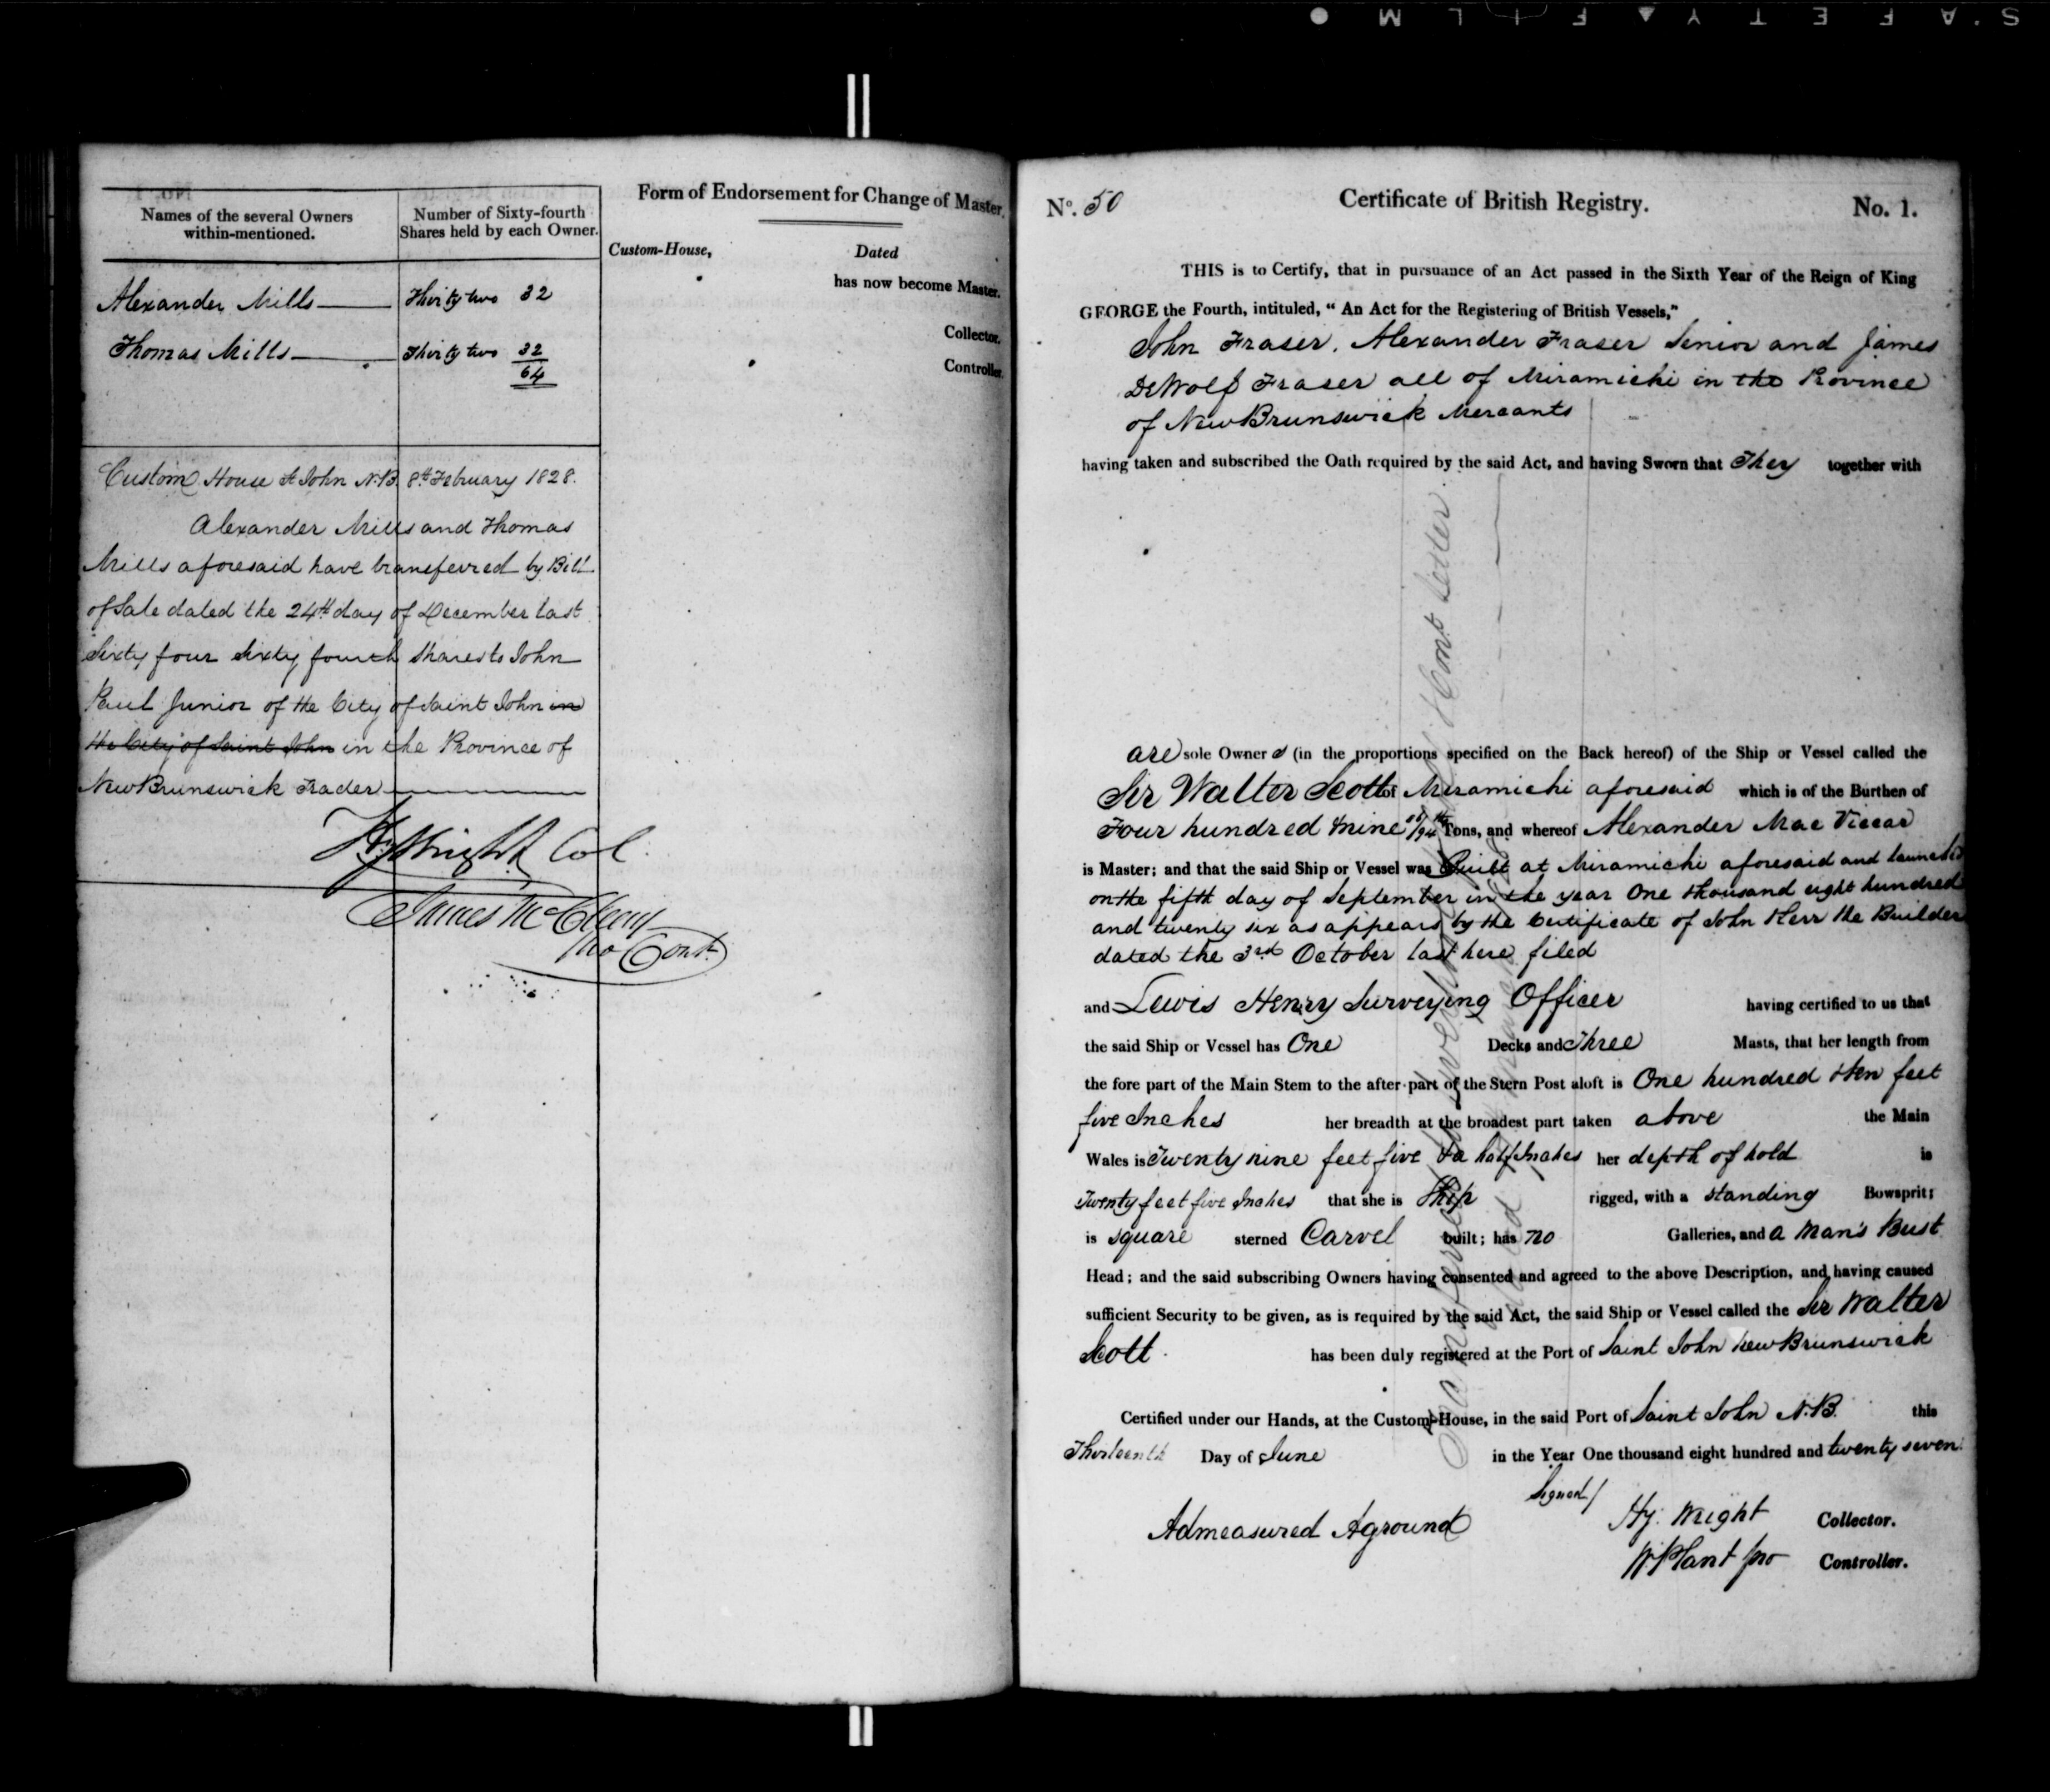 S'AFETY FILM
Names of the several Owners within-mentioned.
Number of Sixty-fourth Shares held by each Owner.
Alexander Mills Thirty two 32
Thomas Mills Thirty two 32
64
Custom House St John N.B. 8th February 1828.
Alexander Mills and Thomas
Mills aforesaid have transferred by Bill
of Sale dated the 24th day of December last
Sixty four Sixty fourth Shares to John
Paul Junior of the City of Saint John in
the City of Saint John in the Province of
New Brunswick Trader
Hy Wright Col
James
pro Cont.
Form of Endorsement for Change of Master.
Custom-House, Dated
has now become Master.
Collector.
Controller.
No. 50 Certificate of British Registry. No. 1.
THIS is to Certify, that in pursuance of an Act passed in the Sixth Year of the Reign of King
GEORGE the Fourth, intituled, “ An Act for the Registering of British Vessels,”
John Fraser, Alexander Fraser Senior and James
DeWolf Fraser all of Miramichi in the Province
of New Brunswick Mercants
having taken and subscribed the Oath required by the said Act, and having Sworn that They together with
are sole Owners (in the proportions specified on the Back hereof) of the Ship or Vessel called the
Sir Walter Scott of Miramichi aforesaid which is of the Burthen of
Four hundred & nine /94 Tons, and whereof Alexander Mac Viccar
is Master; and that the said Ship or Vessel was Built at Miramichi aforesaid and launched
on the fifth day of September in the year One thousand eight hundred
and twenty six as appears by the Certificate of John Kerr the Builder
dated the 3rd October last here filed
and Lewis Henry Surveying Officer having certified to us that
the said Ship or Vessel has One Decks and Three Masts, that her length from
the fore part of the Main Stem to the after part of the Stern Post aloft is One hundred & ten feet
five Inches her breadth at the broadest part taken above the Main
Wales is Twenty nine feet five & a half Inches her depth of hold is
Twenty feet five Inches that she is Ship rigged, with a standing Bowsprit;
is square sterned Carvel built; has no Galleries, and a Man's Bust
Head; and the said subscribing Owners having consented and agreed to the above Description, and having caused
sufficient Security to be given, as is required by the said Act, the said Ship or Vessel called the Sir Walter
Scott has been duly registered at the Port of Saint John New Brunswick
Certified under our Hands, at the Custom-House, in the said Port of Saint John N.B. this
Thirteenth Day of June in the Year One thousand eight hundred and twenty seven.
Signed/
Admeasured Aground
Hy. Wright Collector.
W Plant pro Controller.